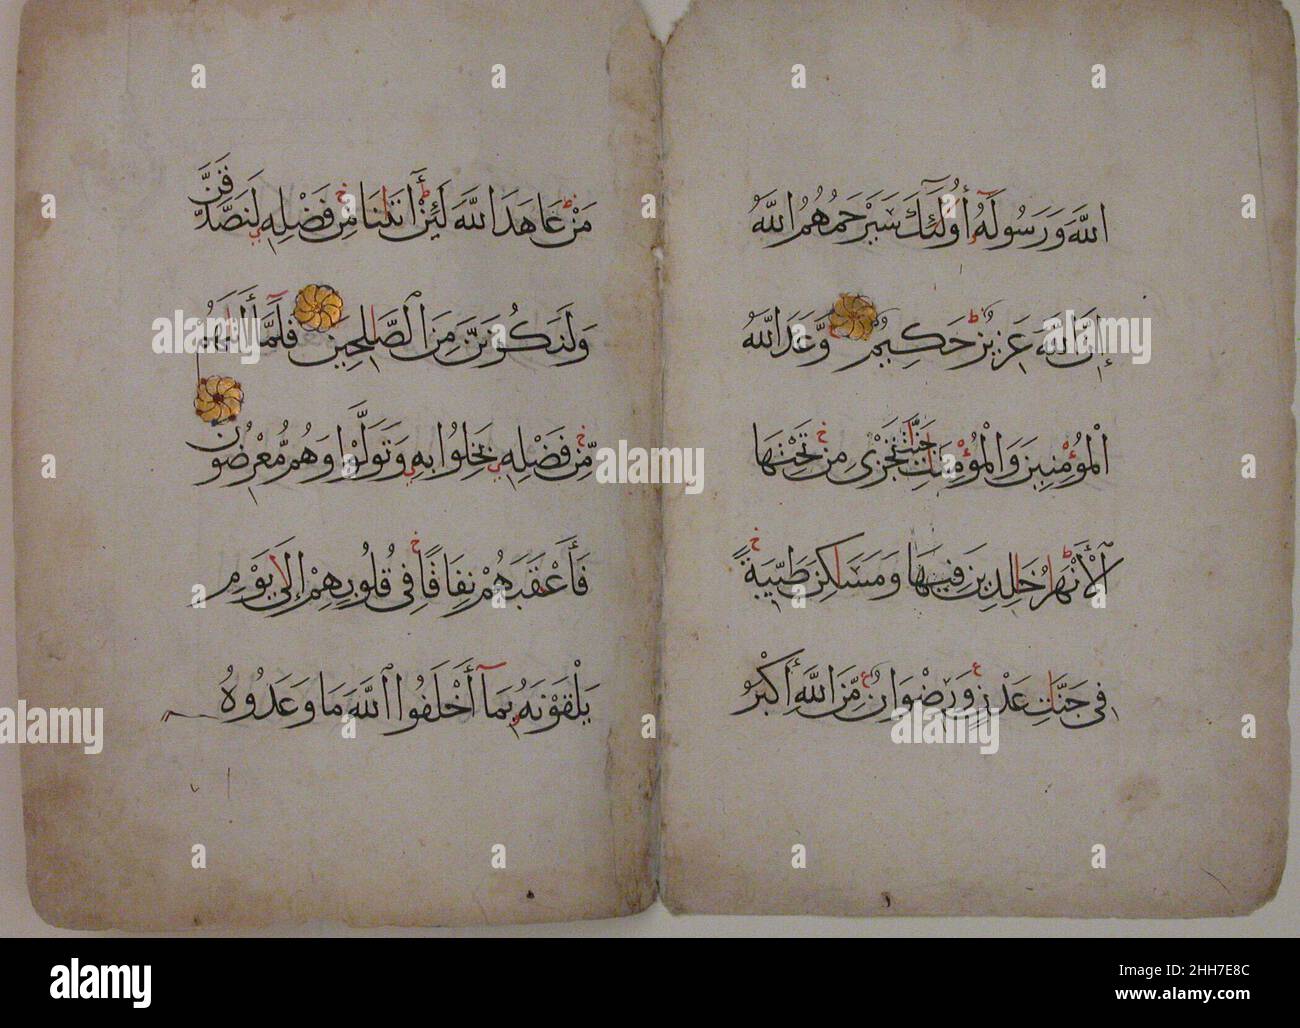 اللَّهَ وَرَسُولَهُ أُولَٰئِكَ سَيَرْحَمُهُمُ اللَّهُ
إِنَّ اللَّهَ عَزِيزٌ حَكِيمٌ وَعَدَ اللَّهُ
الْمُؤْمِنِينَ وَالْمُؤْمِنَاتِ جَنَّاتٍ تَجْرِي مِنْ تَحْتِهَا
الْأَنْهَارُ خَالِدِينَ فِيهَا وَمَسَاكِنَ طَيِّبَةً
فِي جَنَّاتِ عَدْنٍ وَرِضْوَانٌ مِّنَ اللَّهِ أَكْبَرُ
مَنْ عَاهَدَ اللَّهَ لَئِنْ آتَانَا مِنْ فَضْلِهِ لَنَصَّدَّقَنَّ
وَلَنَكُونَنَّ مِنَ الصَّالِحِينَ فَلَمَّا آتَاهُمْ
مِّنْ فَضْلِهِ بَخِلُوا بِهِ وَتَوَلَّوْا وَهُمْ مُّعْرِضُونَ
فَأَعْقَبَهُمْ نِفَاقًا فِي قُلُوبِهِمْ إِلَىٰ يَوْمِ
يَلْقَوْنَهُ بِمَا أَخْلَفُوا اللَّهَ مَا وَعَدُوهُ
alamy
Image ID: 2HH7E8C
www.alamy.com